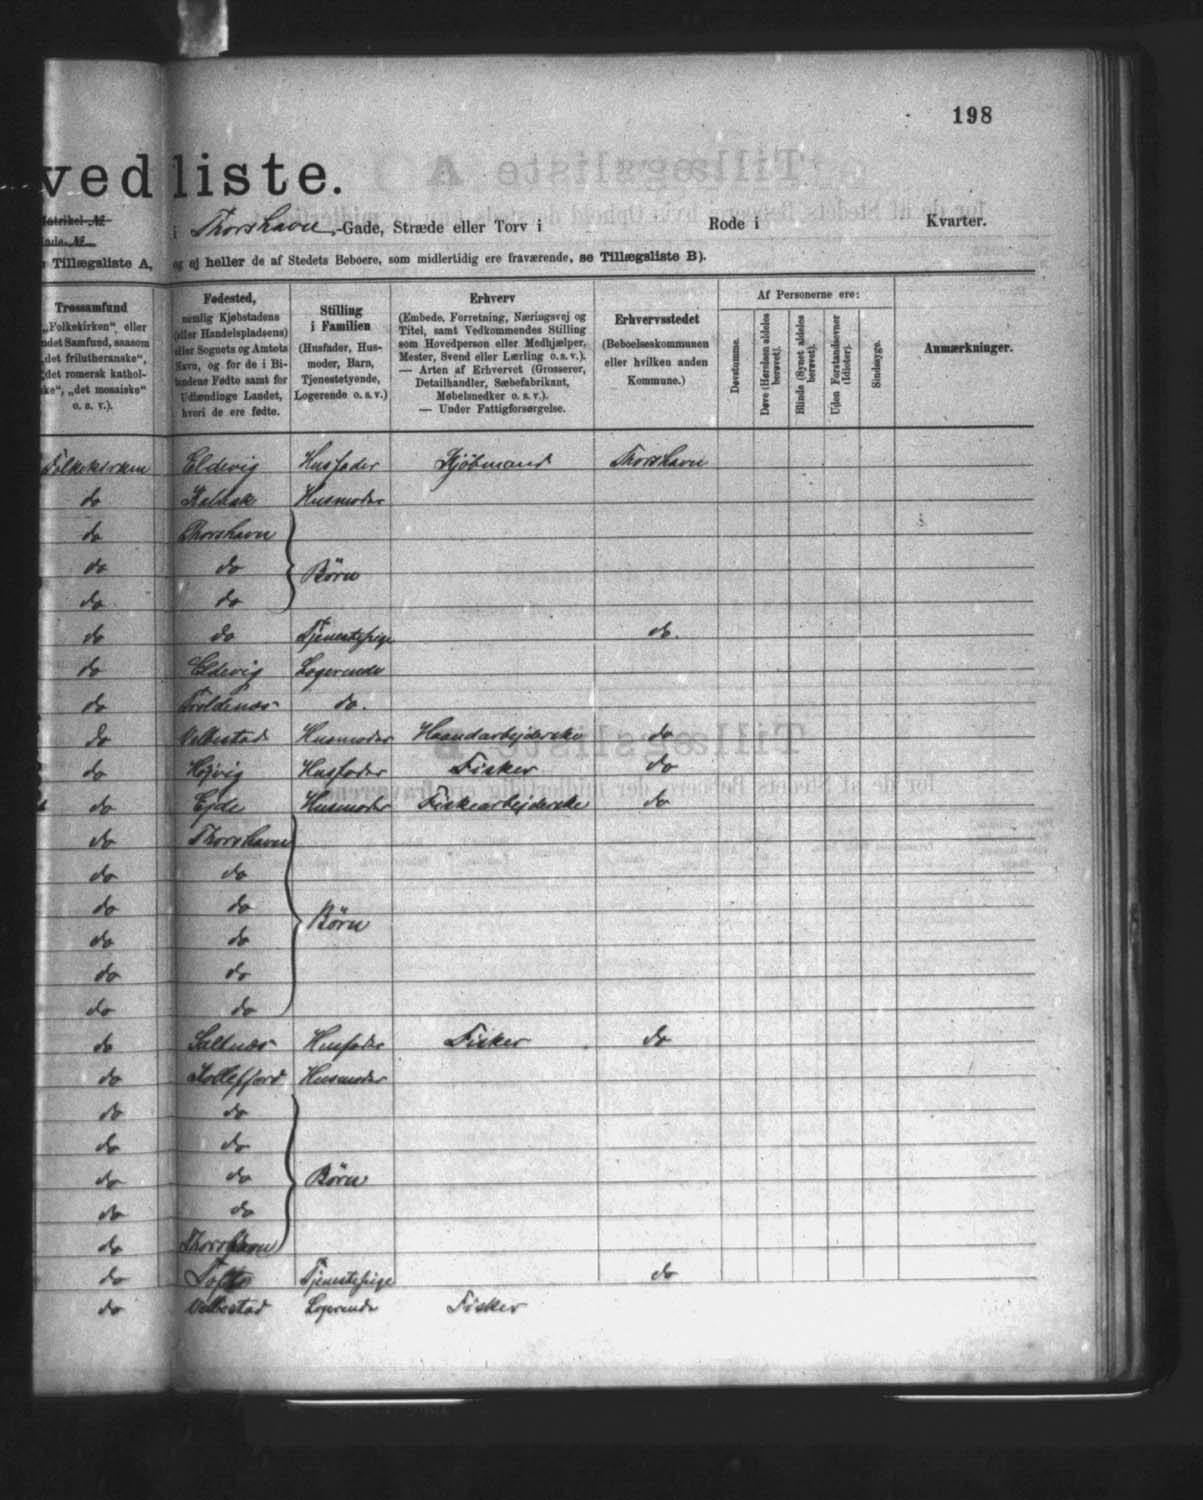 198
vedliste.
Matrikel-№
Gade-№
i Thorshavn,-Gade, Stræde eller Torv i Rode i Kvarter.
Tillægsliste A, og ej heller de af Stedets Beboere, som midlertidig ere fraværende, se Tillægsliste B).
Trossamfund
„Folkekirken“, eller
ndet Samfund, saasom
„det frilutheranske“,
„det romersk kathol-
ske“, „det mosaiske“
o. s. v.).
Fødested,
nemlig Kjøbstadens
(eller Handelspladsens)
eller Sognets og Amtets
Navn, og for de i Bi-
landene Fødte samt for
Udlændinge Landet,
hvori de ere fødte.
Stilling
i Familien
(Husfader, Hus-
moder, Barn,
Tjenestetyende,
Logerende o. s. v.)
Erhverv
(Embede, Forretning, Næringsvej og
Titel, samt Vedkommendes Stilling
som Hovedperson eller Medhjælper,
Mester, Svend eller Lærling o. s. v.).
— Arten af Erhvervet (Grosserer,
Detailhandler, Sæbefabrikant,
Møbelsnedker o. s. v.).
— Under Fattigforsørgelse.
Erhvervsstedet
(Beboelseskommunen
eller hvilken anden
Kommune.)
Af Personerne ere:
Døvstumme.
Døve (Hørelsen aldeles berøvet).
Blinde (Synet aldeles berøvet).
Uden Forstandsevner (Idioter).
Sindssyge.
Anmærkninger.
Folkekirken Eldevig Husfader Kjøbmand Thorshavn
do Kalbak Husmoder
do Thorshavn
do do Børn
do do
do do Tjenestepige do.
do Eldevig Logerende
do Troldenæs do.
do Velbestad Husmoder Haandarbejderske do
do Højvig Husfader Fisker do
do Ejde Husmoder Fiskearbejderske do
do Thorshavn
do do
do do Børn
do do
do do
do do
do Saltnæs Husfader Fisker do
do Kollefjord Husmoder
do do
do do
do do Børn
do do
do Thorshavn
do Tofte Tjenestepige do
do Velbestad Logerende Fisker